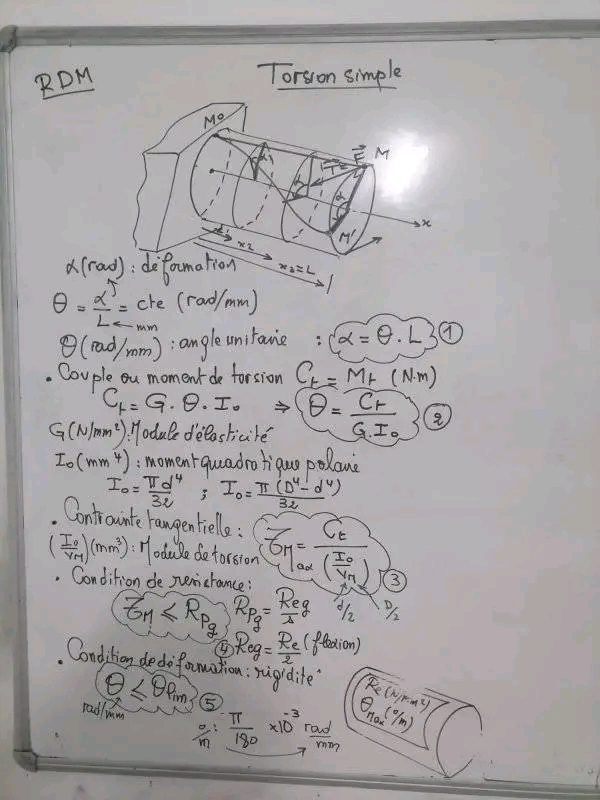 RDM
Torsion simple
M0
α1
F
M
T
α
M'
x
x1
x2
x3 = L
α (rad) : déformation
θ = α/L = cte (rad/mm)
mm
θ (rad/mm) : angle unitaire : α = θ . L ①
. Couple ou moment de torsion Ct = Mt (N.m)
Ct = G . θ . I0 ⇒ θ = Ct / G.I0 ②
G (N/mm²) : Module d'élasticité
I0 (mm⁴) : moment quadratique polaire
I0 = πd⁴/32 ; I0 = π(D⁴-d⁴)/32
. Contrainte tangentielle : τMax = Ct / (I0/VM) ③
(I0/VM) (mm³) : Module de torsion
d/2 D/2
. Condition de resistance :
τM ≤ Rpg Rpg = Reg/s
④ Reg = Re/2 (flexion)
. Condition de déformation : rigidité
θ ≤ θlim ⑤
rad/mm
°/m : π/180 x10⁻³ rad/mm
Re (N/mm²)
θmax (°/m)